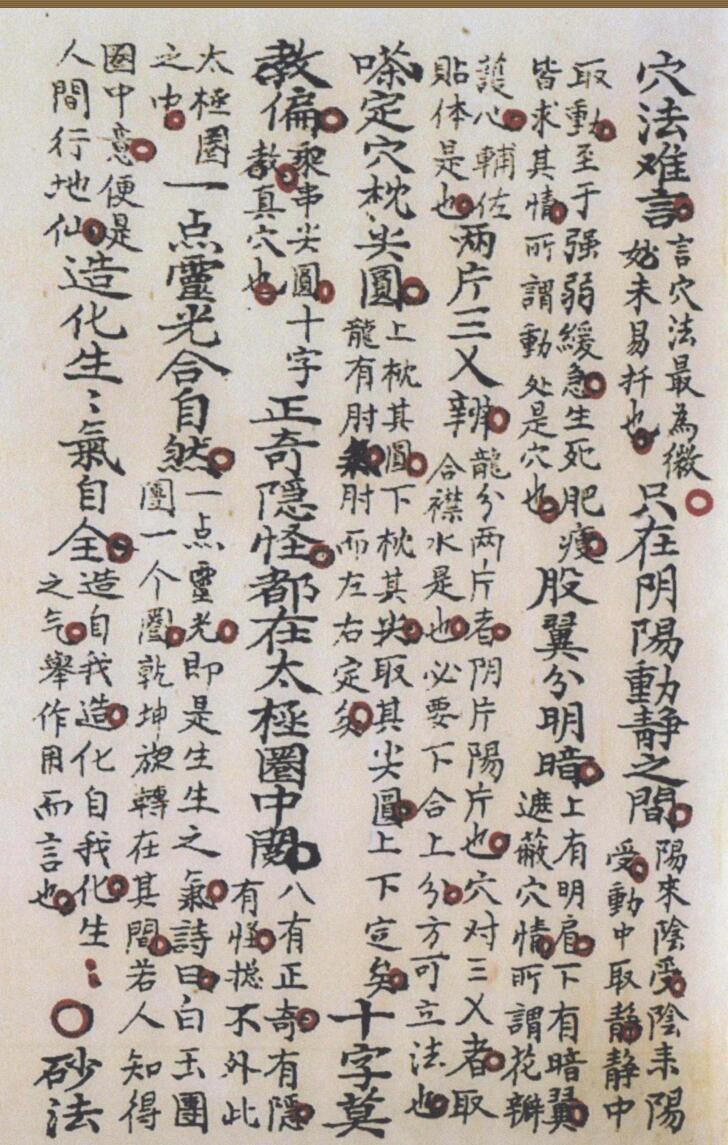 穴法难言言穴法最為微妙未易扦也只在阴陽動靜之間陽來陰受陰來陽受動中取静静中
取動至于强弱緩急生死肥瘦皆求其情所謂動处是穴也股翼分明暗上有明肩下有暗翼遮蔽穴情所謂花瓣
護心輔佐貼体是也两片三乂辨龍分两片者阴片陽片也穴对三乂者取合襟水是也必要下合上分方可立法也
嗏定穴枕尖圓上枕其圓下枕其尖取其尖圓上下定矣龍有肘氣肘而左右定矣十字莫
教偏乘串尖圓十字教真穴也正奇隐怪都在太極圈中閱八有正奇有隱有怪揔不外此
太極圈之中一点靈光合自然一点靈光即是生生之氣詩曰白玉團團一个圈乾坤旋轉在其間若人知得
圈中意便是人間行地仙造化生〻氣自全造自我造化自我化生之气舉作用而言也砂法